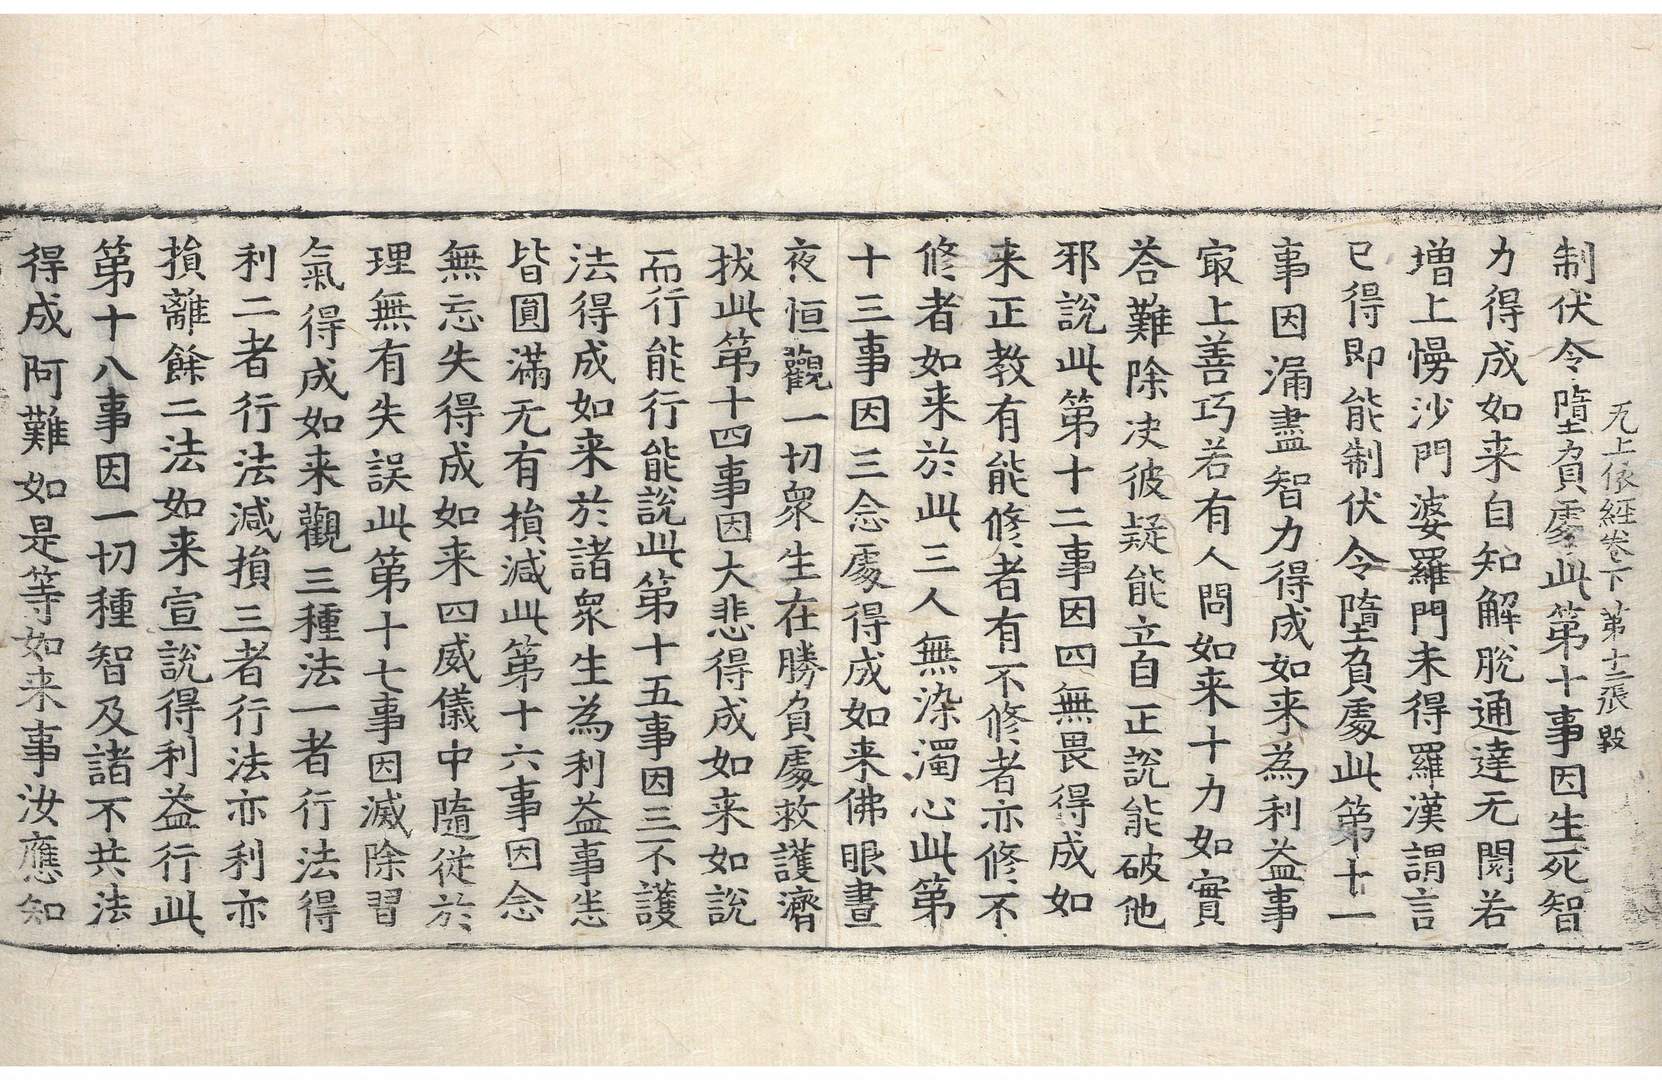 无上依經卷下 第十二張 毀
制伏令墮負處此第十事因生死智
力得成如来自知解脫通達无閡若
增上慢沙門婆羅門未得羅漢謂言
已得即能制伏令墮負處此第十一
事因漏盡智力得成如来為利益事
㝡上善巧若有人問如来十力如實
荅難除决彼疑能立自正說能破他
邪說此第十二事因四無畏得成如
来正教有能修者有不修者亦修不
修者如来於此三人無染濁心此第
十三事因三念處得成如来佛眼晝
夜恒觀一切衆生在勝負處救護濟
拔此第十四事因大悲得成如来如說
而行能行能說此第十五事因三不護
法得成如来於諸衆生為利益事悉
皆圓滿无有損減此第十六事因念
無忘失得成如来四威儀中隨從於
理無有失誤此第十七事因滅除習
氣得成如来觀三種法一者行法得
利二者行法減損三者行法亦利亦
損離餘二法如来宣說得利益行此
第十八事因一切種智及諸不共法
得成阿難如是等如来事汝應知